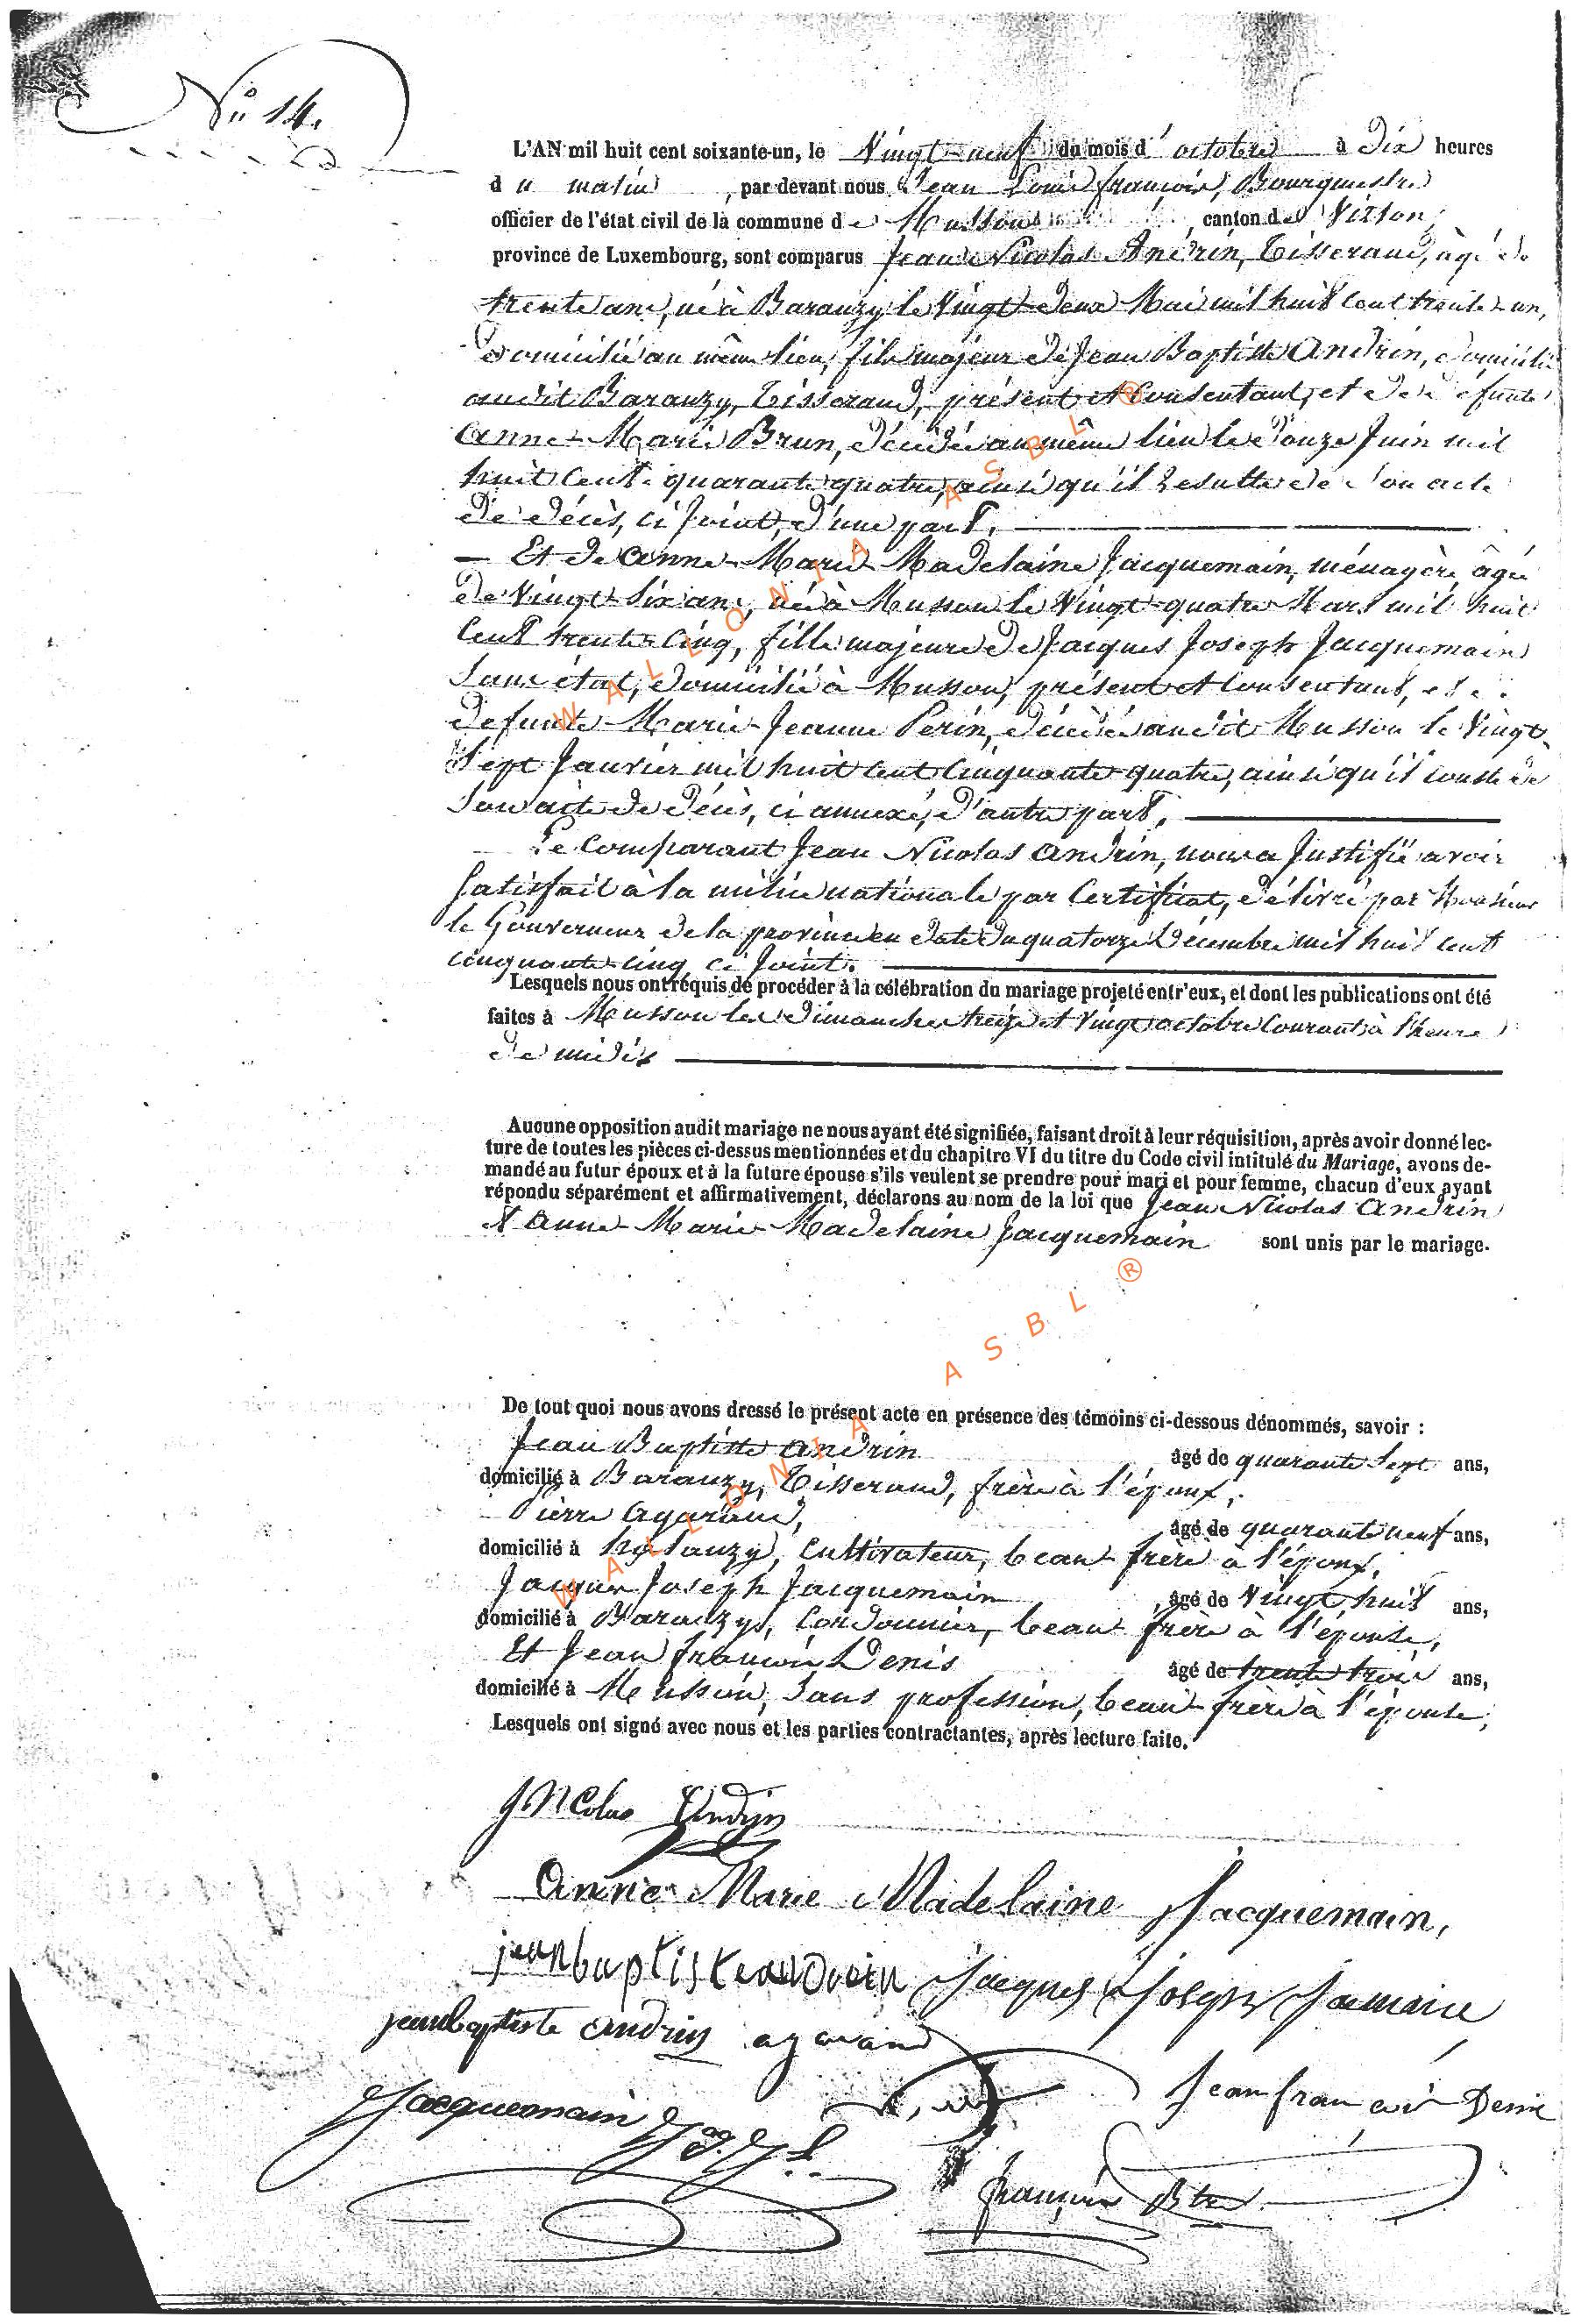 N° 14.
L'AN mil huit cent soixante-un, le Vingt-neuf du mois d'octobre à Dix heures
du matin, par devant nous Jean Louis françois, Bourgmestre
officier de l'état civil de la commune de Musson canton de Virton,
province de Luxembourg, sont comparus Jean Nicolas Andrin, Tisserand, âgé de
trente ans, né à Baranzy le Vingt-deux Mai mil huit cent trente-un,
Domicilié au même lieu, fils majeur de Jean Baptiste Andrin, domicilié
audit Baranzy, Tisserand, présent et Consentant, et de défunte
Anne-Marie Brun, décédée au même lieu le douze Juin mil
huit Cent quarante quatre, ainsi qu'il Resulte de son acte
de décès, ci Joint, d'une part.
— Et de Anne-Marie Madelaine Jacquemain, ménagère, âgée
de Vingt-Six ans, née à Musson le Vingt-quatre Mars mil huit
Cent trente-Cinq, fille majeure de Jacques Joseph Jacquemain
Sans état, domicilié à Musson, présent et Consentant, et de
defunte Marie-Jeanne Perin, décédée audit Musson le Vingt-
Sept Janvier mil huit Cent Cinquante-quatre, ainsi qu'il conste de
Son acte de décès, ci annexé, d'autre part.
Le Comparant Jean Nicolas Andrin, nous a Justifié avoir
Satisfait à la milice nationale par Certificat, délivré par Monsieur
le Gouverneur de la province en date du quatorze Décembre mil huit Cent
cinquante-cinq ci Joint.
Lesquels nous ont requis de procéder à la célébration du mariage projeté entr'eux, et dont les publications ont été
faites à Musson les Dimanches treize et Vingt octobre Courant à l'heure
de midi
Aucune opposition audit mariage ne nous ayant été signifiée, faisant droit à leur réquisition, après avoir donné lec-
ture de toutes les pièces ci-dessus mentionnées et du chapitre VI du titre du Code civil intitulé du Mariage, avons de-
mandé au futur époux et à la future épouse s'ils veulent se prendre pour mari et pour femme, chacun d'eux ayant
répondu séparément et affirmativement, déclarons au nom de la loi que Jean Nicolas Andrin
et Anne-Marie-Madelaine Jacquemain sont unis par le mariage.
De tout quoi nous avons dressé le présent acte en présence des témoins ci-dessous dénommés, savoir :
Jean Baptiste Andrin âgé de quarante Sept ans,
domicilié à Baranzy, Tisserand, frère à l'époux,
Pierre Agarand, âgé de quarante neuf ans,
domicilié à Cultivateur, beau-frère à l'époux,
Jacques Joseph Jacquemain âgé de Vingt-huit ans,
domicilié à Baranzy, Cordonnier, beau-frère à l'épouse,
Et Jean françois Denis âgé de trente trois ans,
domicilié à Musson, Sans profession, beau-frère à l'épouse,
Lesquels ont signé avec nous et les parties contractantes, après lecture faite.
J Nicolas Andrin
Anne Marie Madelaine Jacquemain,
jean baptiste andrin Jacques Joseph
jean baptiste andrin agarand
Jacquemain Jean françois Denis
françois
WALLONIA ASBL ®
WALLONIA ASBL ®